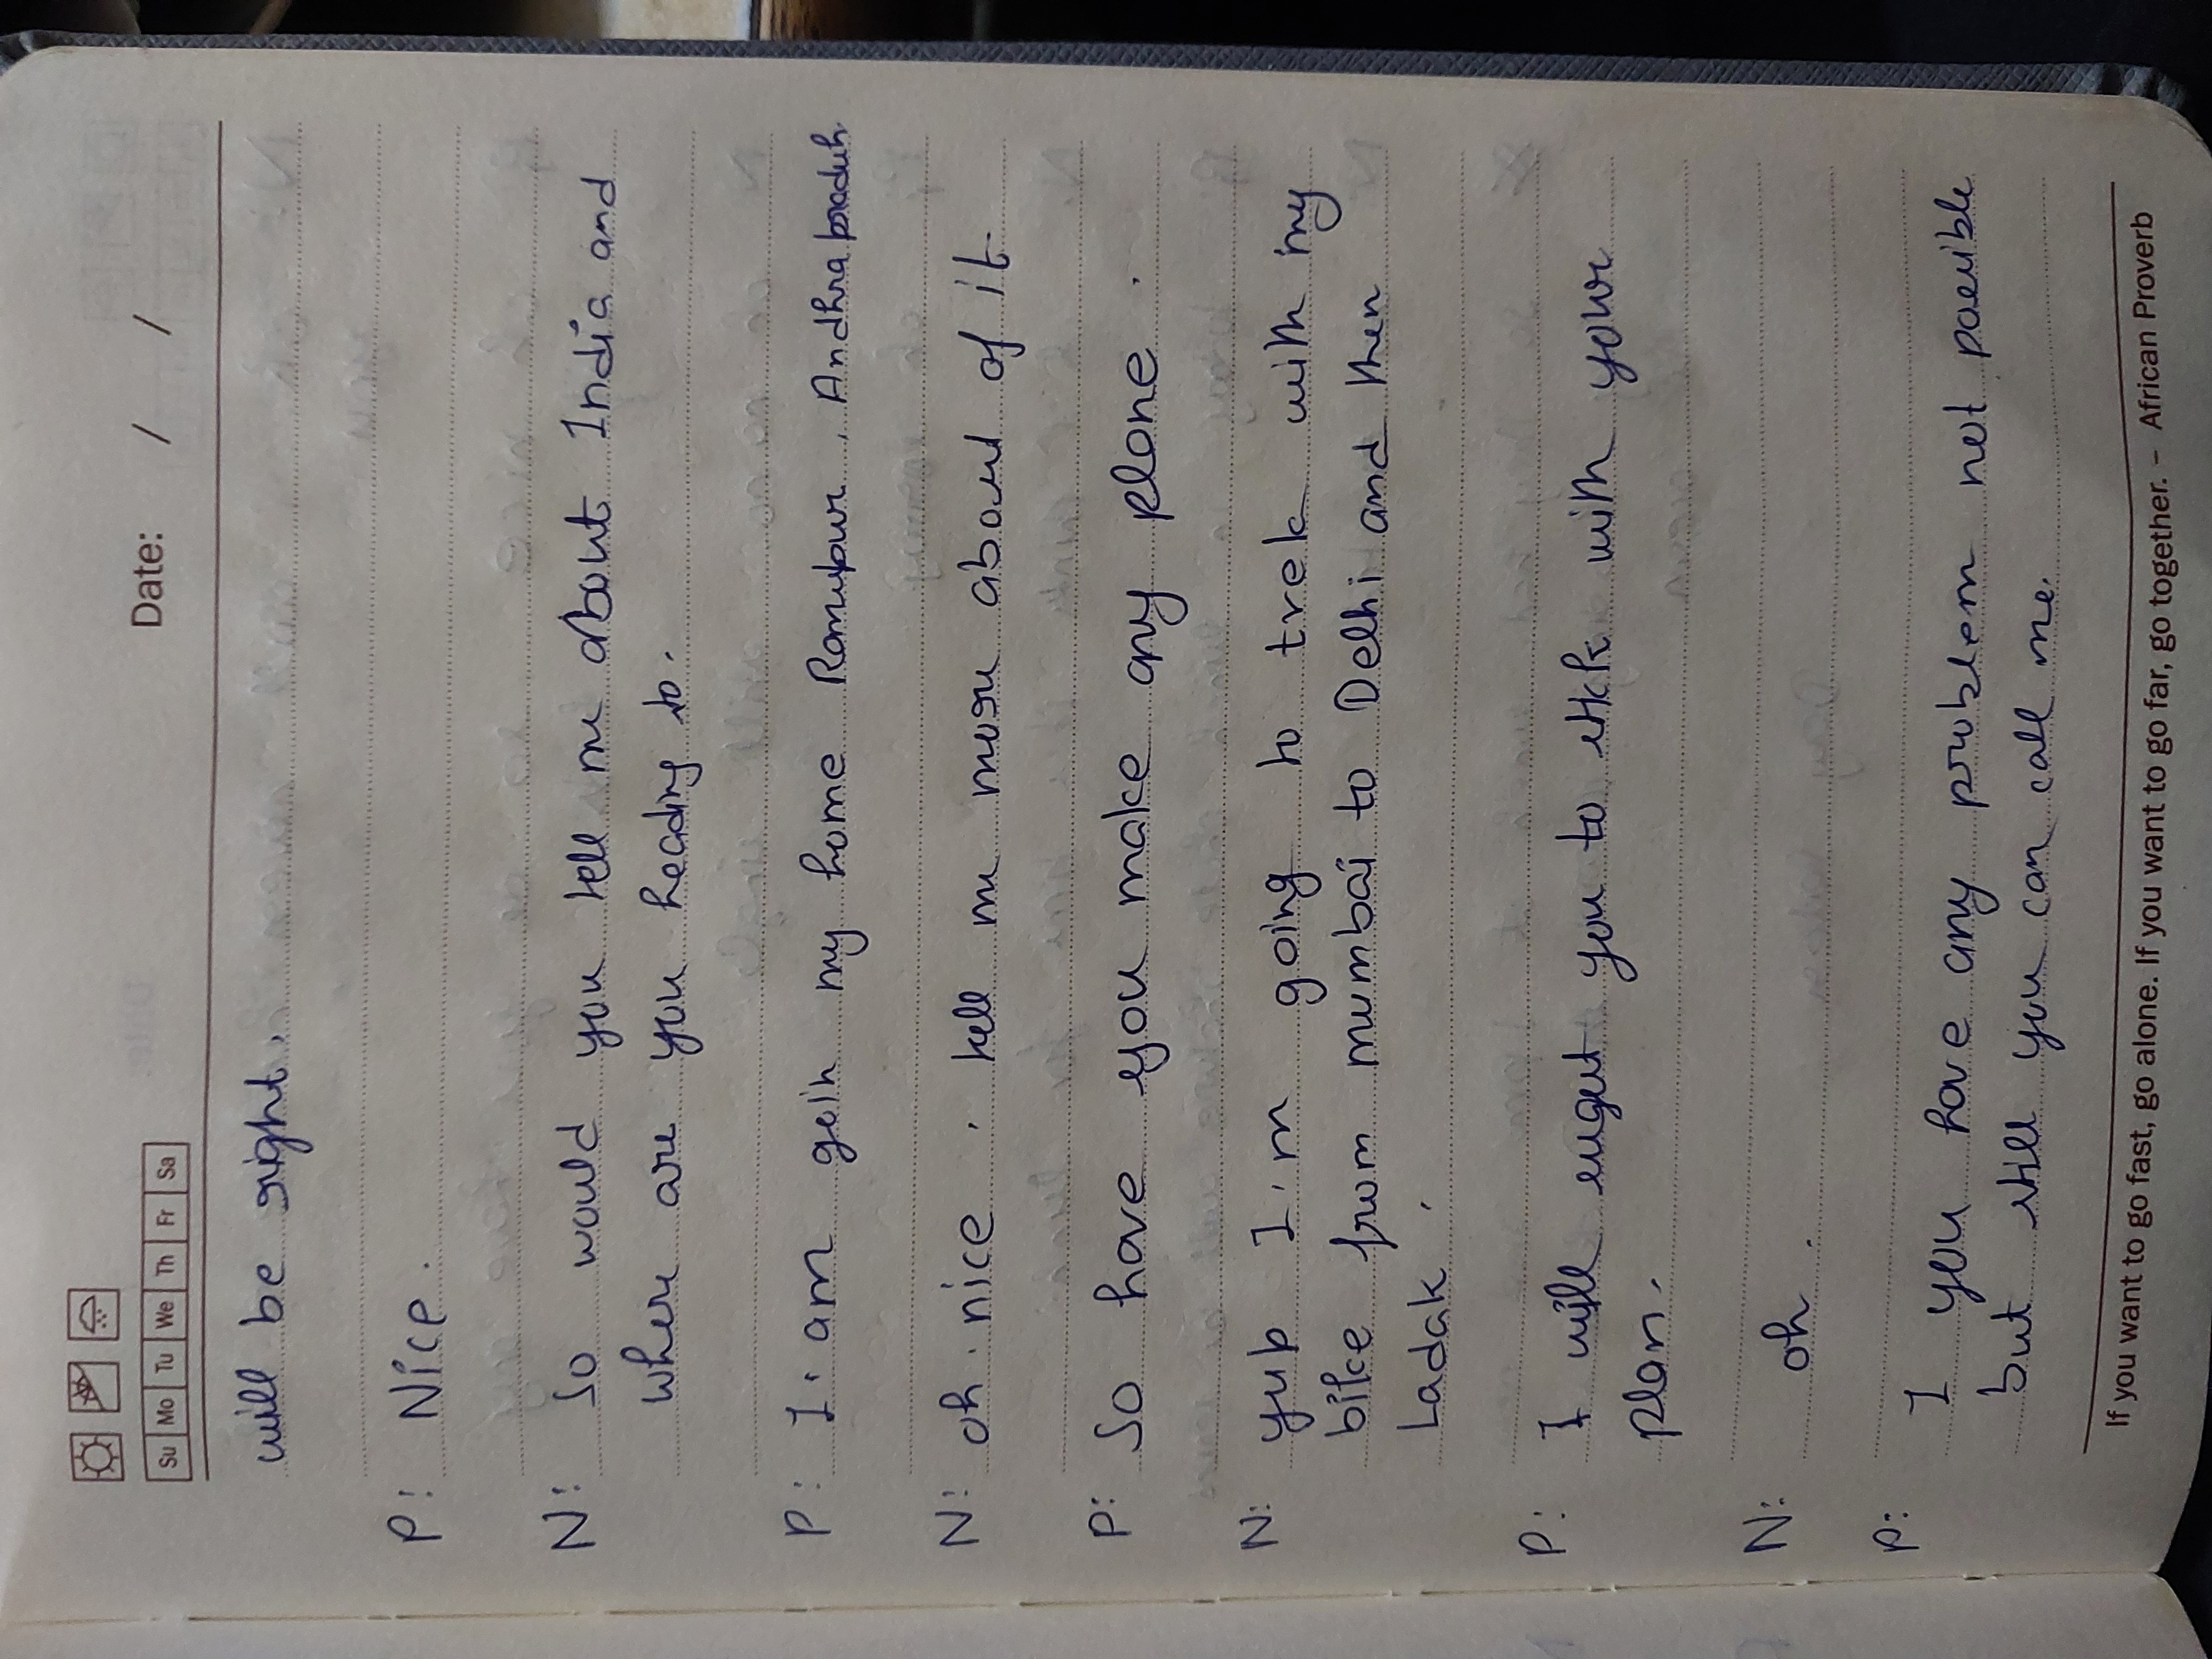 Su Mo Tu We Th Fr Sa
Date: / /
will be right.
P: Nice.
N: So would you tell me about India and
where are you heading to.
P: I. am goin my home , Andhra
N: oh. nice . tell me more about of it.
P: So have you make any plane.
N: yup I'm going to trek with my
bike from mumbai to Delhi and then
Ladak.
P: I will you to with your
plan.
N: oh.
P: I you have any problem not
but still you can call me.
If you want to go fast, go alone. If you want to go far, go together. – African Proverb